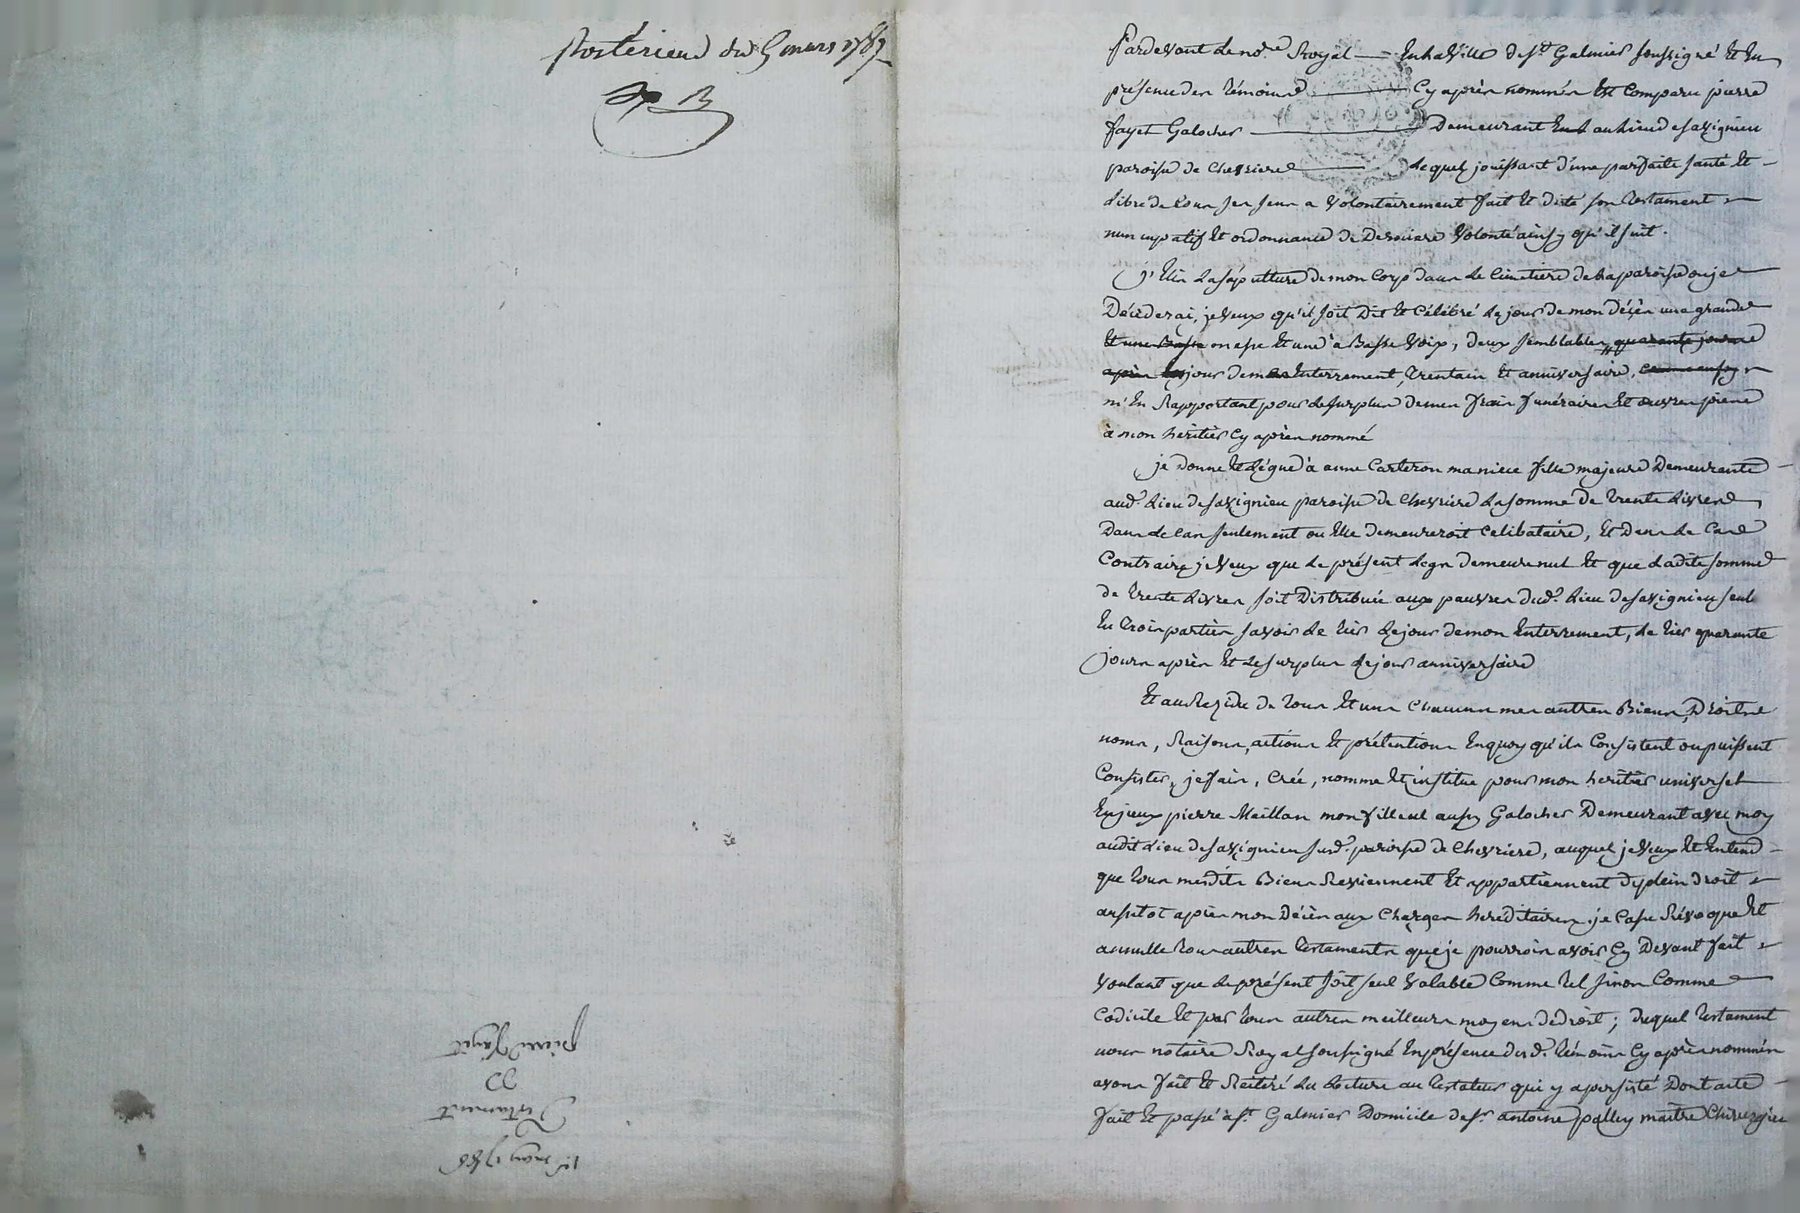 Postérieur du 5 mars 1787
Pardevant le no.re Royal — En la Ville de St Galmier soussigné Et En
présence des témoins — Cy après nommés Est Comparu pierre
fayet Galocher — Demeurant En au Lieu de savignieu
paroisse de Chevriere — Lequel jouissant d'une parfaite santé Et
Libre de tous ses sens a Volontairement fait Et dicté son testament
nuncupatif Et ordonnance de Derniere Volonté ainsy qu'il suit.
j'Elis La sépulture de mon Corp dans Le Cimetiere de La paroisse ou je
Décéderai, je Veux qu'il soit Dit Et Célébré Le jour de mon décès une grande
Et une Basse messe Et une à Basse Voix, deux semblables quarante jours
après Les jour de mon Enterrement, trentain Et anniversaire,
m'En Rapportant pour Le surplus de mes frais funéraires Et œuvres pies
à mon héritier Cy après nommé
je donne Et Lègue à anne Carteron ma niece fille majeure Demeurante
aud. Lieu de savignieu paroisse de Chevriere La somme de trente Livres
Dans Le Cas seulement ou Elle demeureroit Celibataire, Et Dans Le Cas
Contraire je Veux que Le présent Legs demeure nul Et que Ladite somme
de trente Livres soit Distribuée aux pauvres dud. Lieu de savignieu seul
En trois parties savoir Le tiers Le jour de mon Enterrement, Le tiers quarante
jours après Et Le surplus Le jour anniversaire
Et au Rezidu de tous Et uns Chacuns mes autres Biens, Droits
noms, Raisons, actions Et prétentions En quoy qu'ils Consistent ou puissent
Consister, je fais, Crée, nomme Et institue pour mon heritier universel
pierre Maillan mon filleul aussy Galocher Demeurant avec moy
audit Lieu de savignieu susd. paroisse de Chevriere, auquel je Veux Et Entend
que tous mesdits Biens Reviennent Et appartiennent de plein droit
aussitot après mon Décès aux Charges hereditaires je Casse Révoque Et
annulle tous autres testaments que je pourrois avoir Cy Devant fait
Voulant que Le présent soit seul Valable Comme tel sinon Comme
Codicile Et par tous autres meilleurs moyens de droit; duquel testament
nous notaire Royal soussigné En présence desd. témoins Cy après nommés
avons fait Et Réitéré La Lecture au testateur qui y a persisté Dont acte
fait Et passé à St Galmier Domicile de sr antoine palley maitre Chirurgien
may 1788
Testament
De
pierre fayet